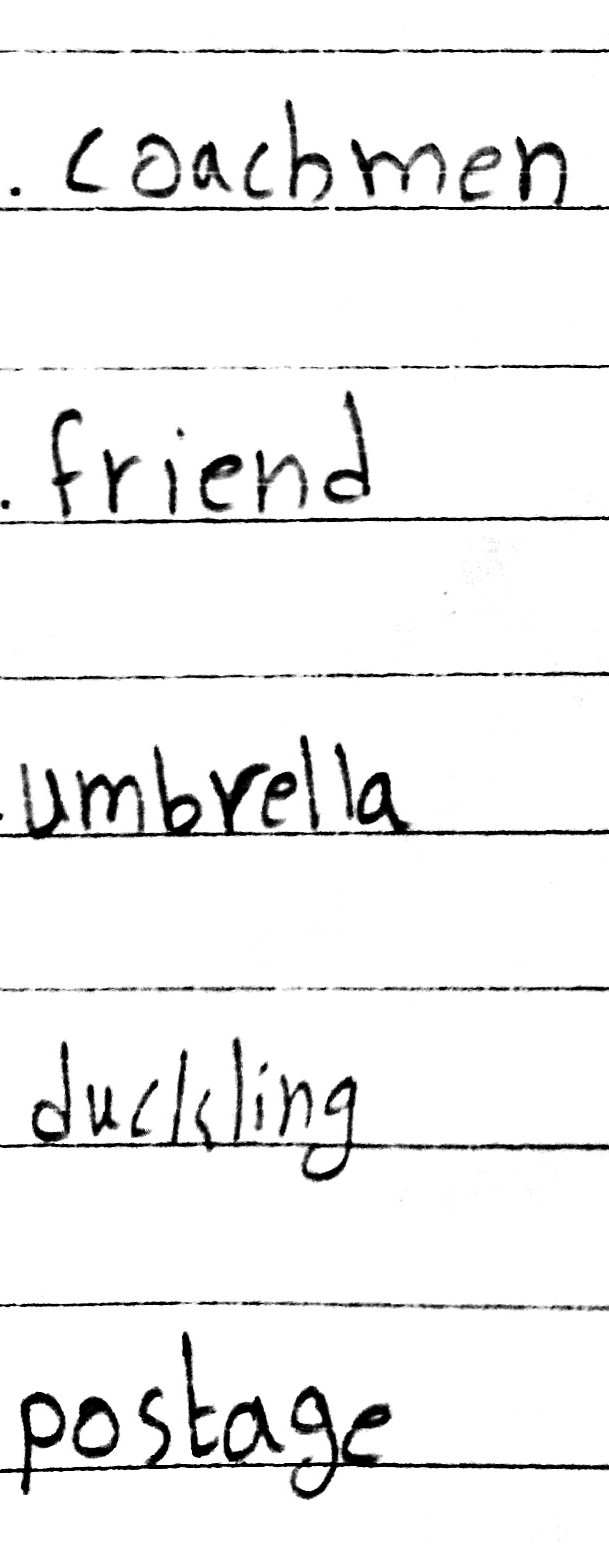 . coachmen
. friend
. umbrella
duckling
postage